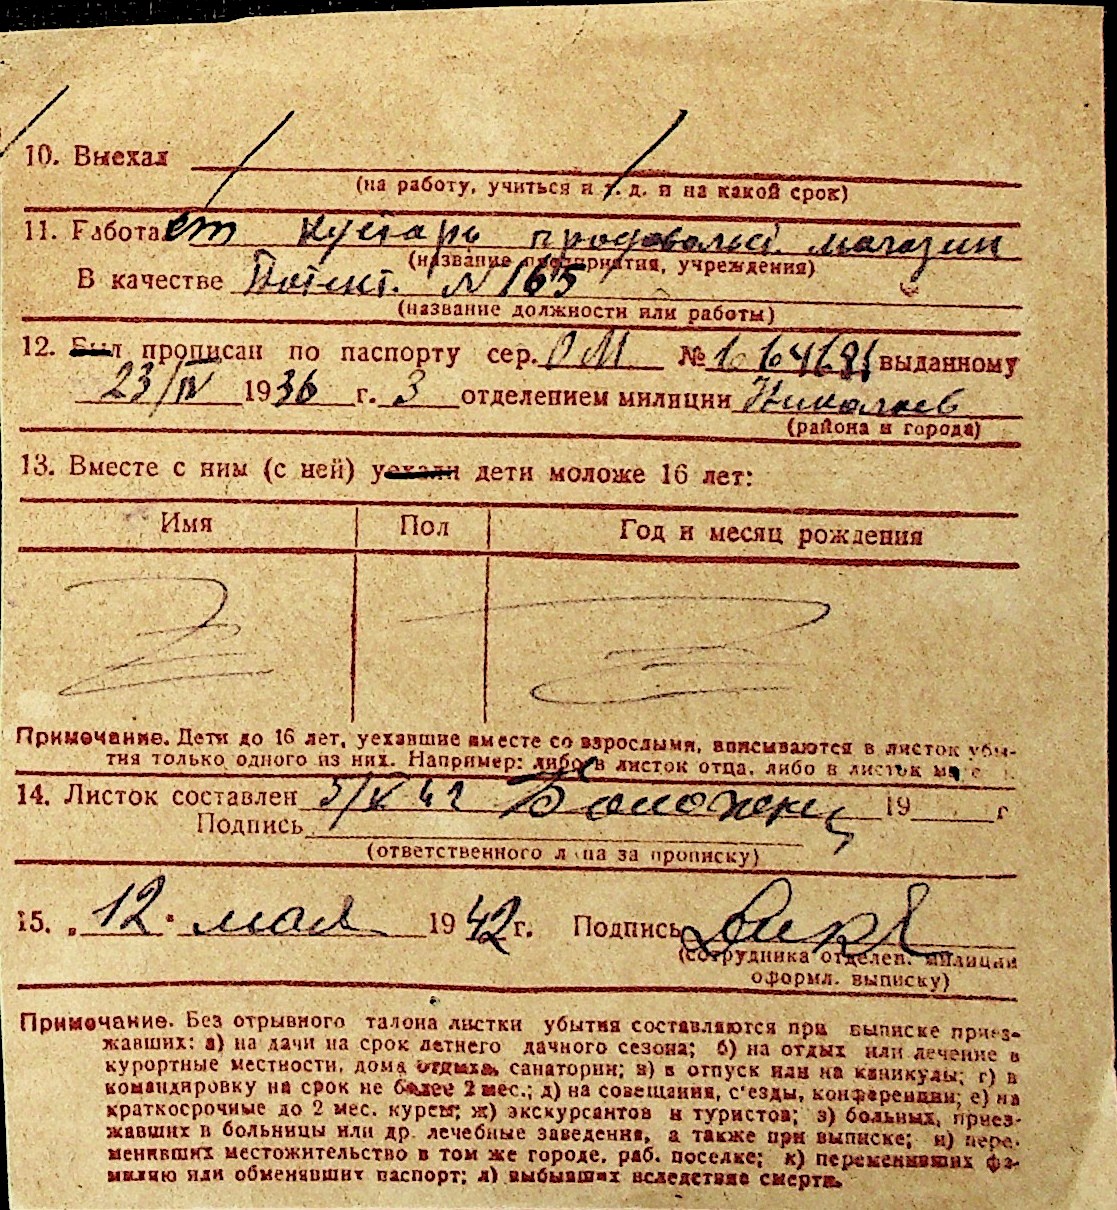 10. Выехал
(на работу, учиться и т. д. и на какой срок)
11. Работает кустарь продовольст. магазин
(название предприятия, учреждения)
В качестве Патент. N 165
(название должности или работы)
12. Был прописан по паспорту сер. ОМ № выданному
23/IV 1936 г. 3 отделением милиции Николаев
(района и города)
13. Вместе с ним (с ней) уехали дети моложе 16 лет:
Имя Пол Год и месяц рождения
Примечание. Дети до 16 лет, уехавшие вместе со взрослыми, вписываются в листок убы-
тия только одного из них. Например: либо в листок отца, либо в листок
14. Листок составлен 5/V 42 19 г
Подпись
(ответственного лица за прописку)
15. „ 12 " мая 1942 г. Подпись
(сотрудника отделен. милиции
оформл. выписку)
Примечание. Без отрывного талона листки убытия составляются при выписке приез-
жавших: а) на дачи на срок летнего дачного сезона; б) на отдых или лечение в
курортные местности, дома отдыха, санатории; в) в отпуск или на каникулы; г) в
командировку на срок не более 2 мес.; д) на совещания, с'езды, конференции; е) на
краткосрочные до 2 мес. курсы; ж) экскурсантов и туристов; з) больных, приез-
жавших в больницы или др. лечебные заведения, а также при выписке; и) пере-
менивших местожительство в том же городе, раб. поселке; к) переменивших фа-
милию или обменявших паспорт; л) выбывших вследствие смерти.